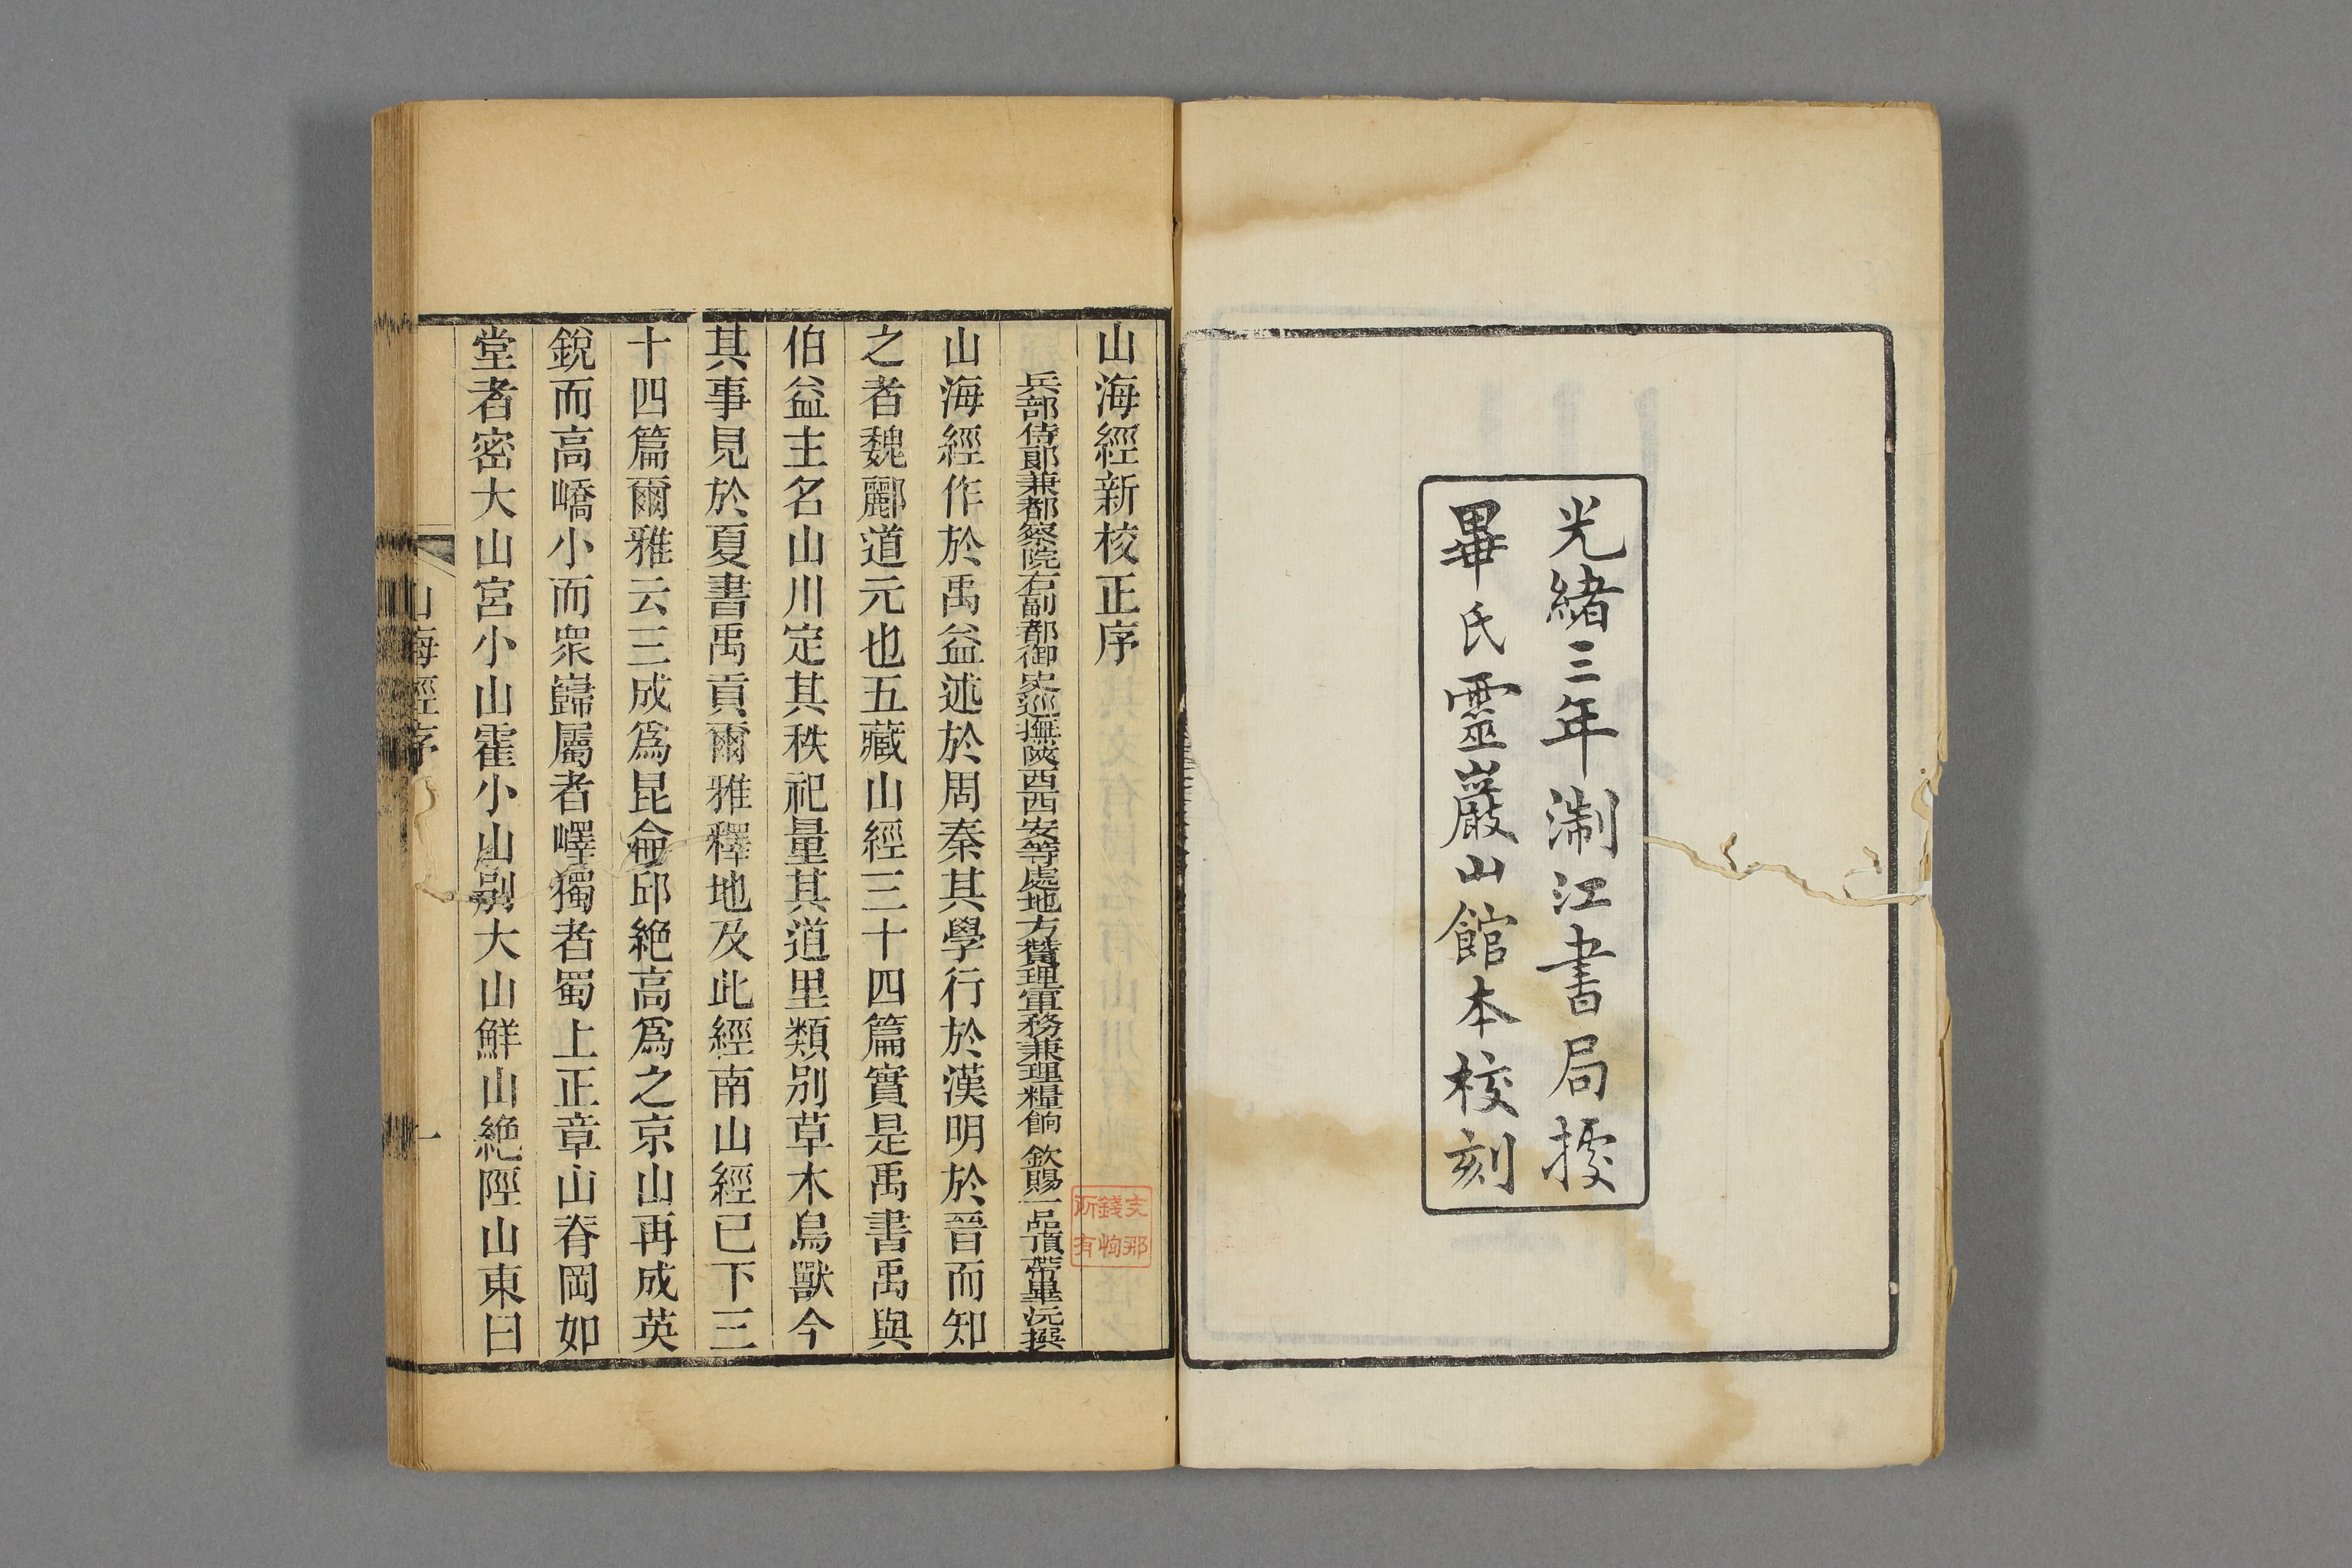 光緒三年淛江書局據
畢氏靈巖山館本校刻
山海經新校正序
兵部侍郞兼都察院右副都御史巡撫陝西西安等處地方贊理軍務兼理糧餉 欽賜一品頂帶畢沅撰
山海經作於禹益述於周秦其學行於漢明於晉而知
之者魏酈道元也五藏山經三十四篇實是禹書禹與
伯益主名山川定其秩祀量其道里類別草木鳥獸今
其事見於夏書禹貢爾雅釋地及此經南山經已下三
十四篇爾雅云三成爲昆侖邱絶高爲之京山再成英
銳而高嶠小而衆巋屬者嶧獨者蜀上正章山脊岡如
堂者密大山宮小山霍小山別大山鮮山絶陘山東曰
山海經序
一
支那
錢恂
所有